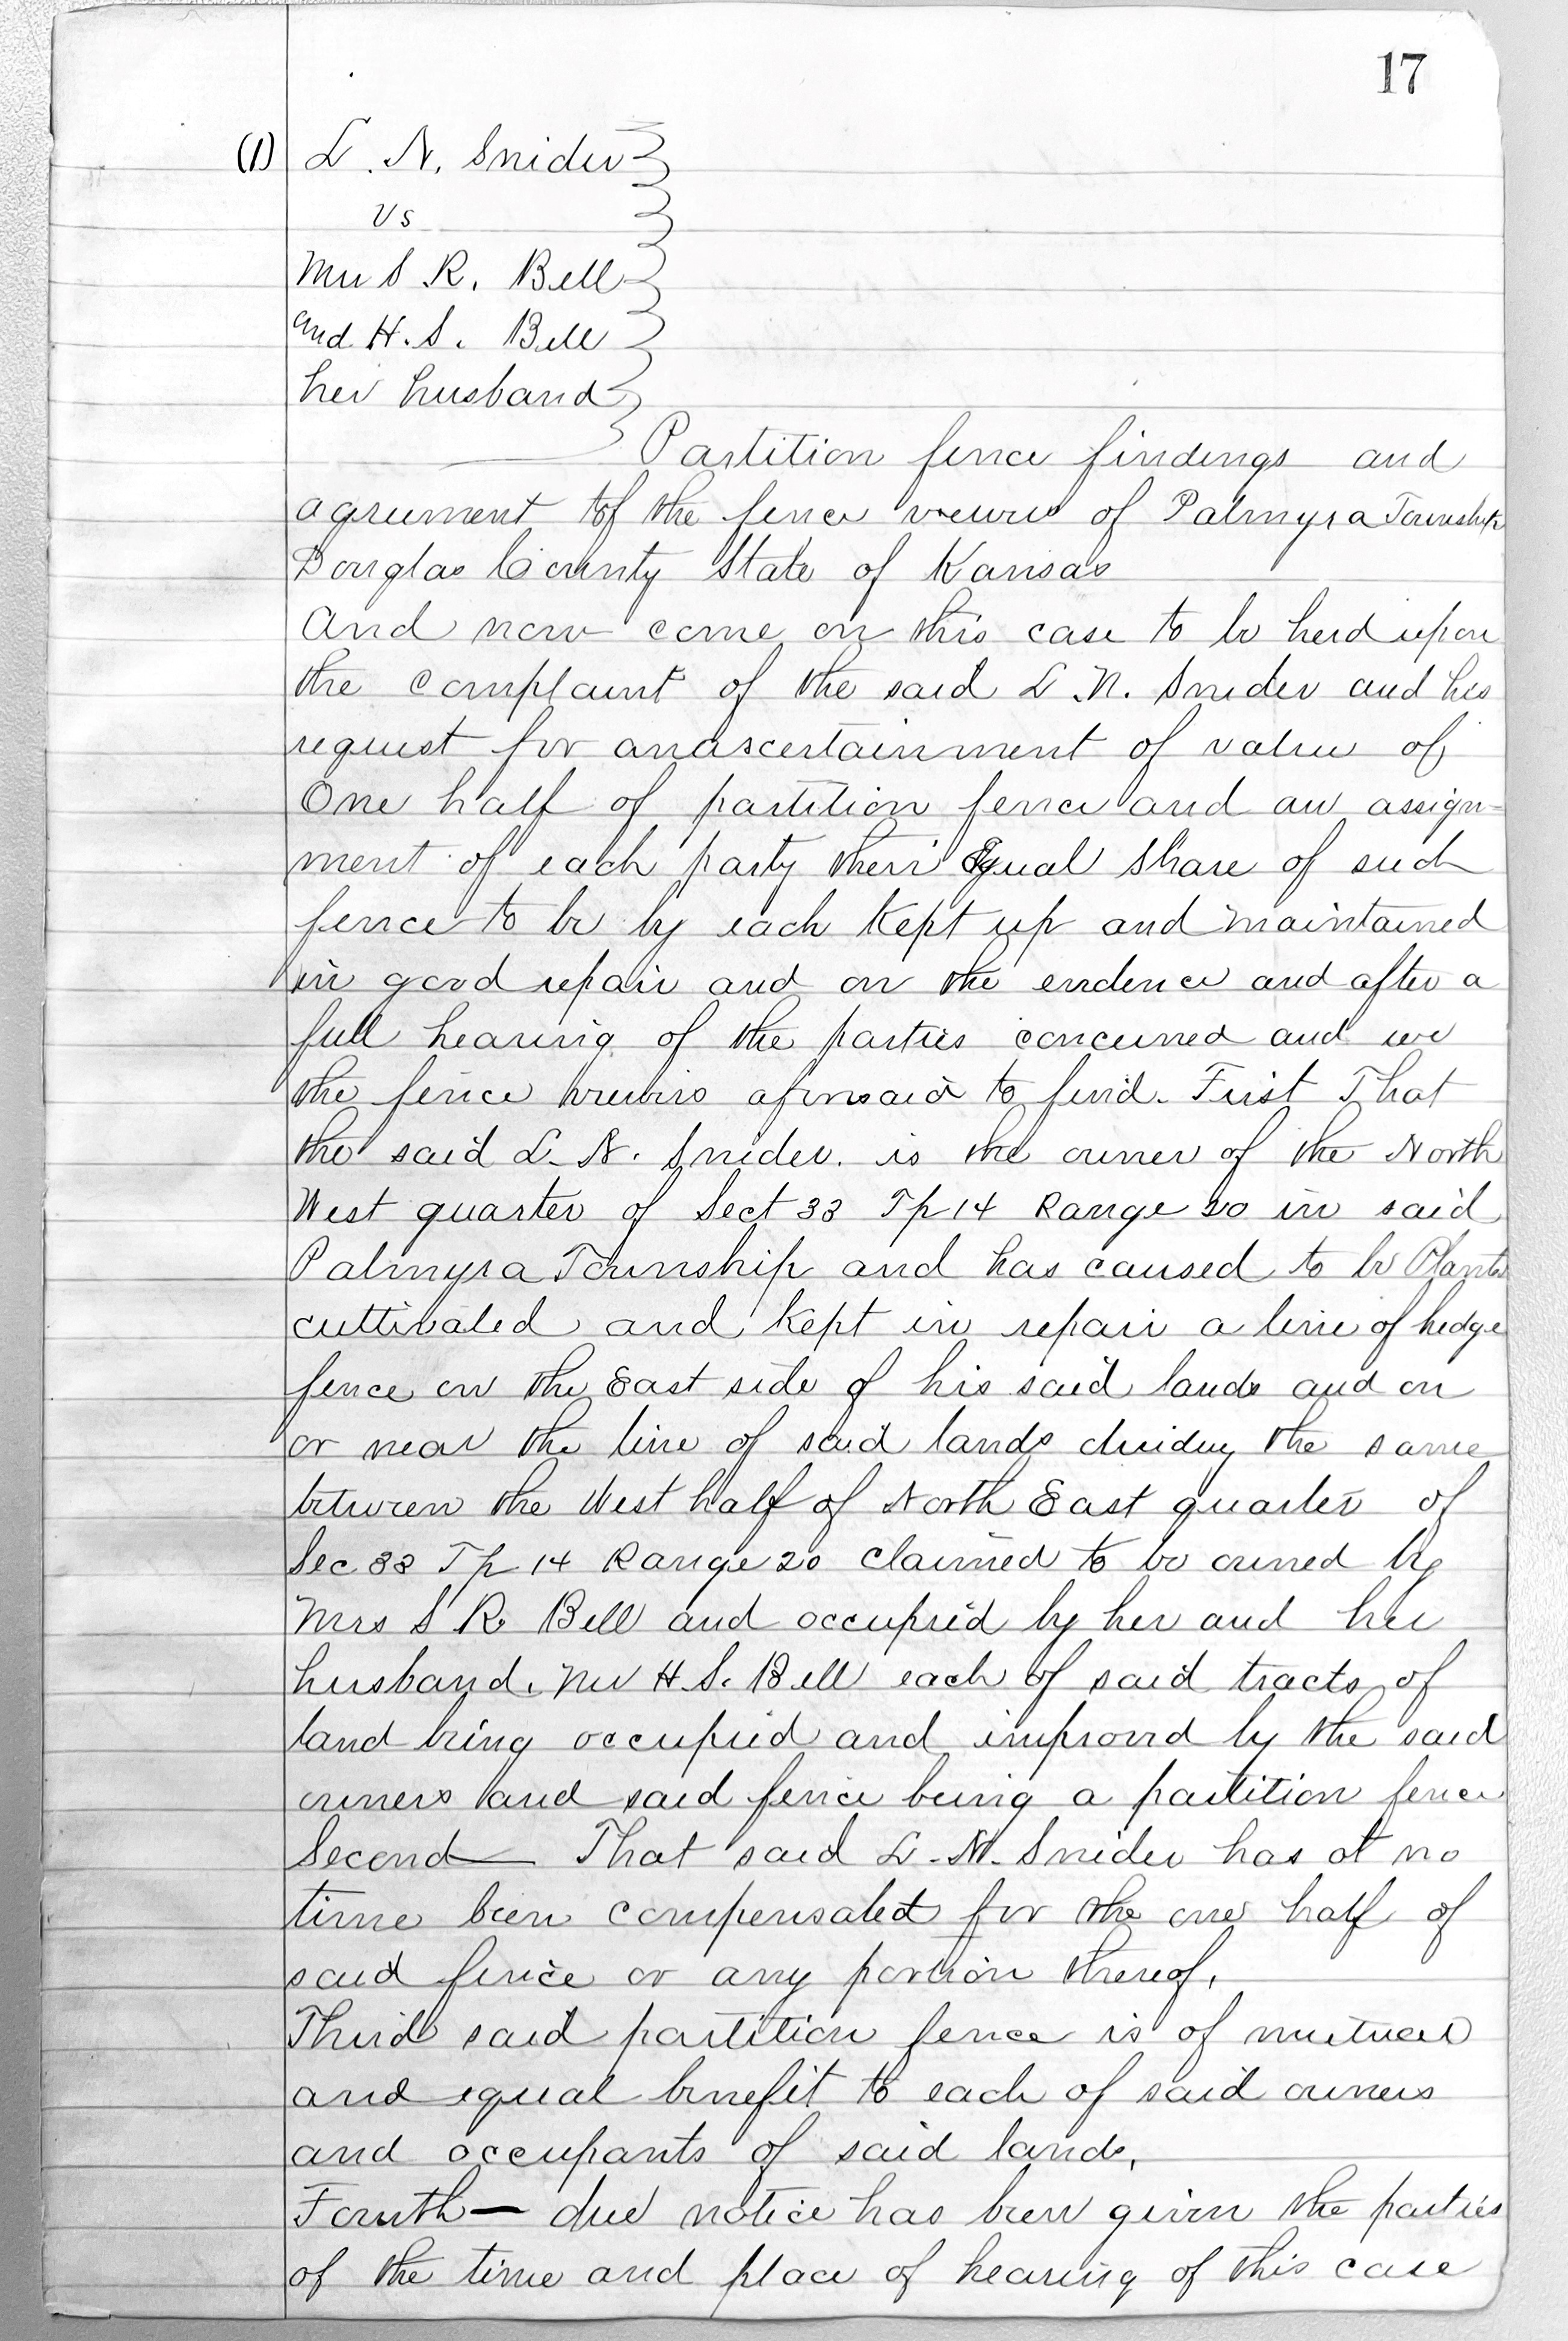 17
(1) L. N. Snider
vs
Mrs S R. Bell
and H. S. Bell
her husband
Partition fence findings and
agreement of the fence viewers of Palmyra Township
Douglas County State of Kansas
And now come on this case to be herd upon
the complaint of the said L. N. Snider and his
request for an ascertainment of value of
One half of partition fence and an assign-
ment of each party their Equal share of such
fence to be by each kept up and maintained
in good repair and on the evidence and after a
full hearing of the parties concerned and we
the fence viewers aforesaid to find. First That
the said L. N. Snider. is the owner of the North
West quarter of Sect 33 Tp 14 Range 20 in said
Palmyra Township and has caused to be Planted
cultivated and kept in repair a line of hedge
fence on the East side of his said lands and on
or near the line of said lands dividing the same
between the West half of North East quarter of
Sec 33 Tp 14 Range 20 claimed to be owned by
Mrs S R. Bell and occupied by her and her
husband. Mr H. S. Bell each of said tracts of
land being occupied and improved by the said
owners and said fence being a partition fence
Second — That said L. N. Snider has at no
time been compensated for the one half of
said fence or any portion thereof.
Third said partition fence is of mutual
and equal benefit to each of said owners
and occupants of said lands.
Fourth — due notice has been given the parties
of the time and place of hearing of this case